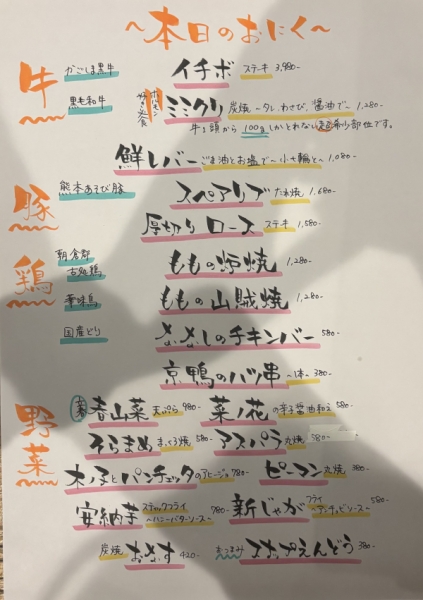 ～本日のおにく～
牛
かごしま黒牛 イチボ ステーキ 3,980-
黒毛和牛 ホルモン好き必食 ミミクリ 炭焼 〜タレ、わさび、醤油で〜 1,280-
牛1頭から100gしかとれない超希少部位です。
鮮レバー ごま油とお塩で〜小ネギと〜 1,080-
豚
熊本あそび豚 スペアリブ たれ焼 1,680-
厚切りロース ステーキ 1,580-
鶏
朝倉郡 古処鶏 ももの炉焼 1,280-
華味鳥 ももの山賊焼 1,280-
国産どり 名なしのチキンバー 580-
京鴨のハツ串 〜1本〜 380-
野菜
春山菜 天ぷら 980- 菜ノ花の辛子醤油和え 580-
そらまめ まっくろ焼 580- アスパラ 丸焼 580-
木ノ子とパンチェッタのアヒージョ 780- ピーマン 丸焼 380-
安納芋 スティックフライ 〜ハニーバターソース〜 780- 新じゃが フライ 〜アンチョビソース〜 580-
炭焼 おなす 420- おつまみ スナップえんどう 380-